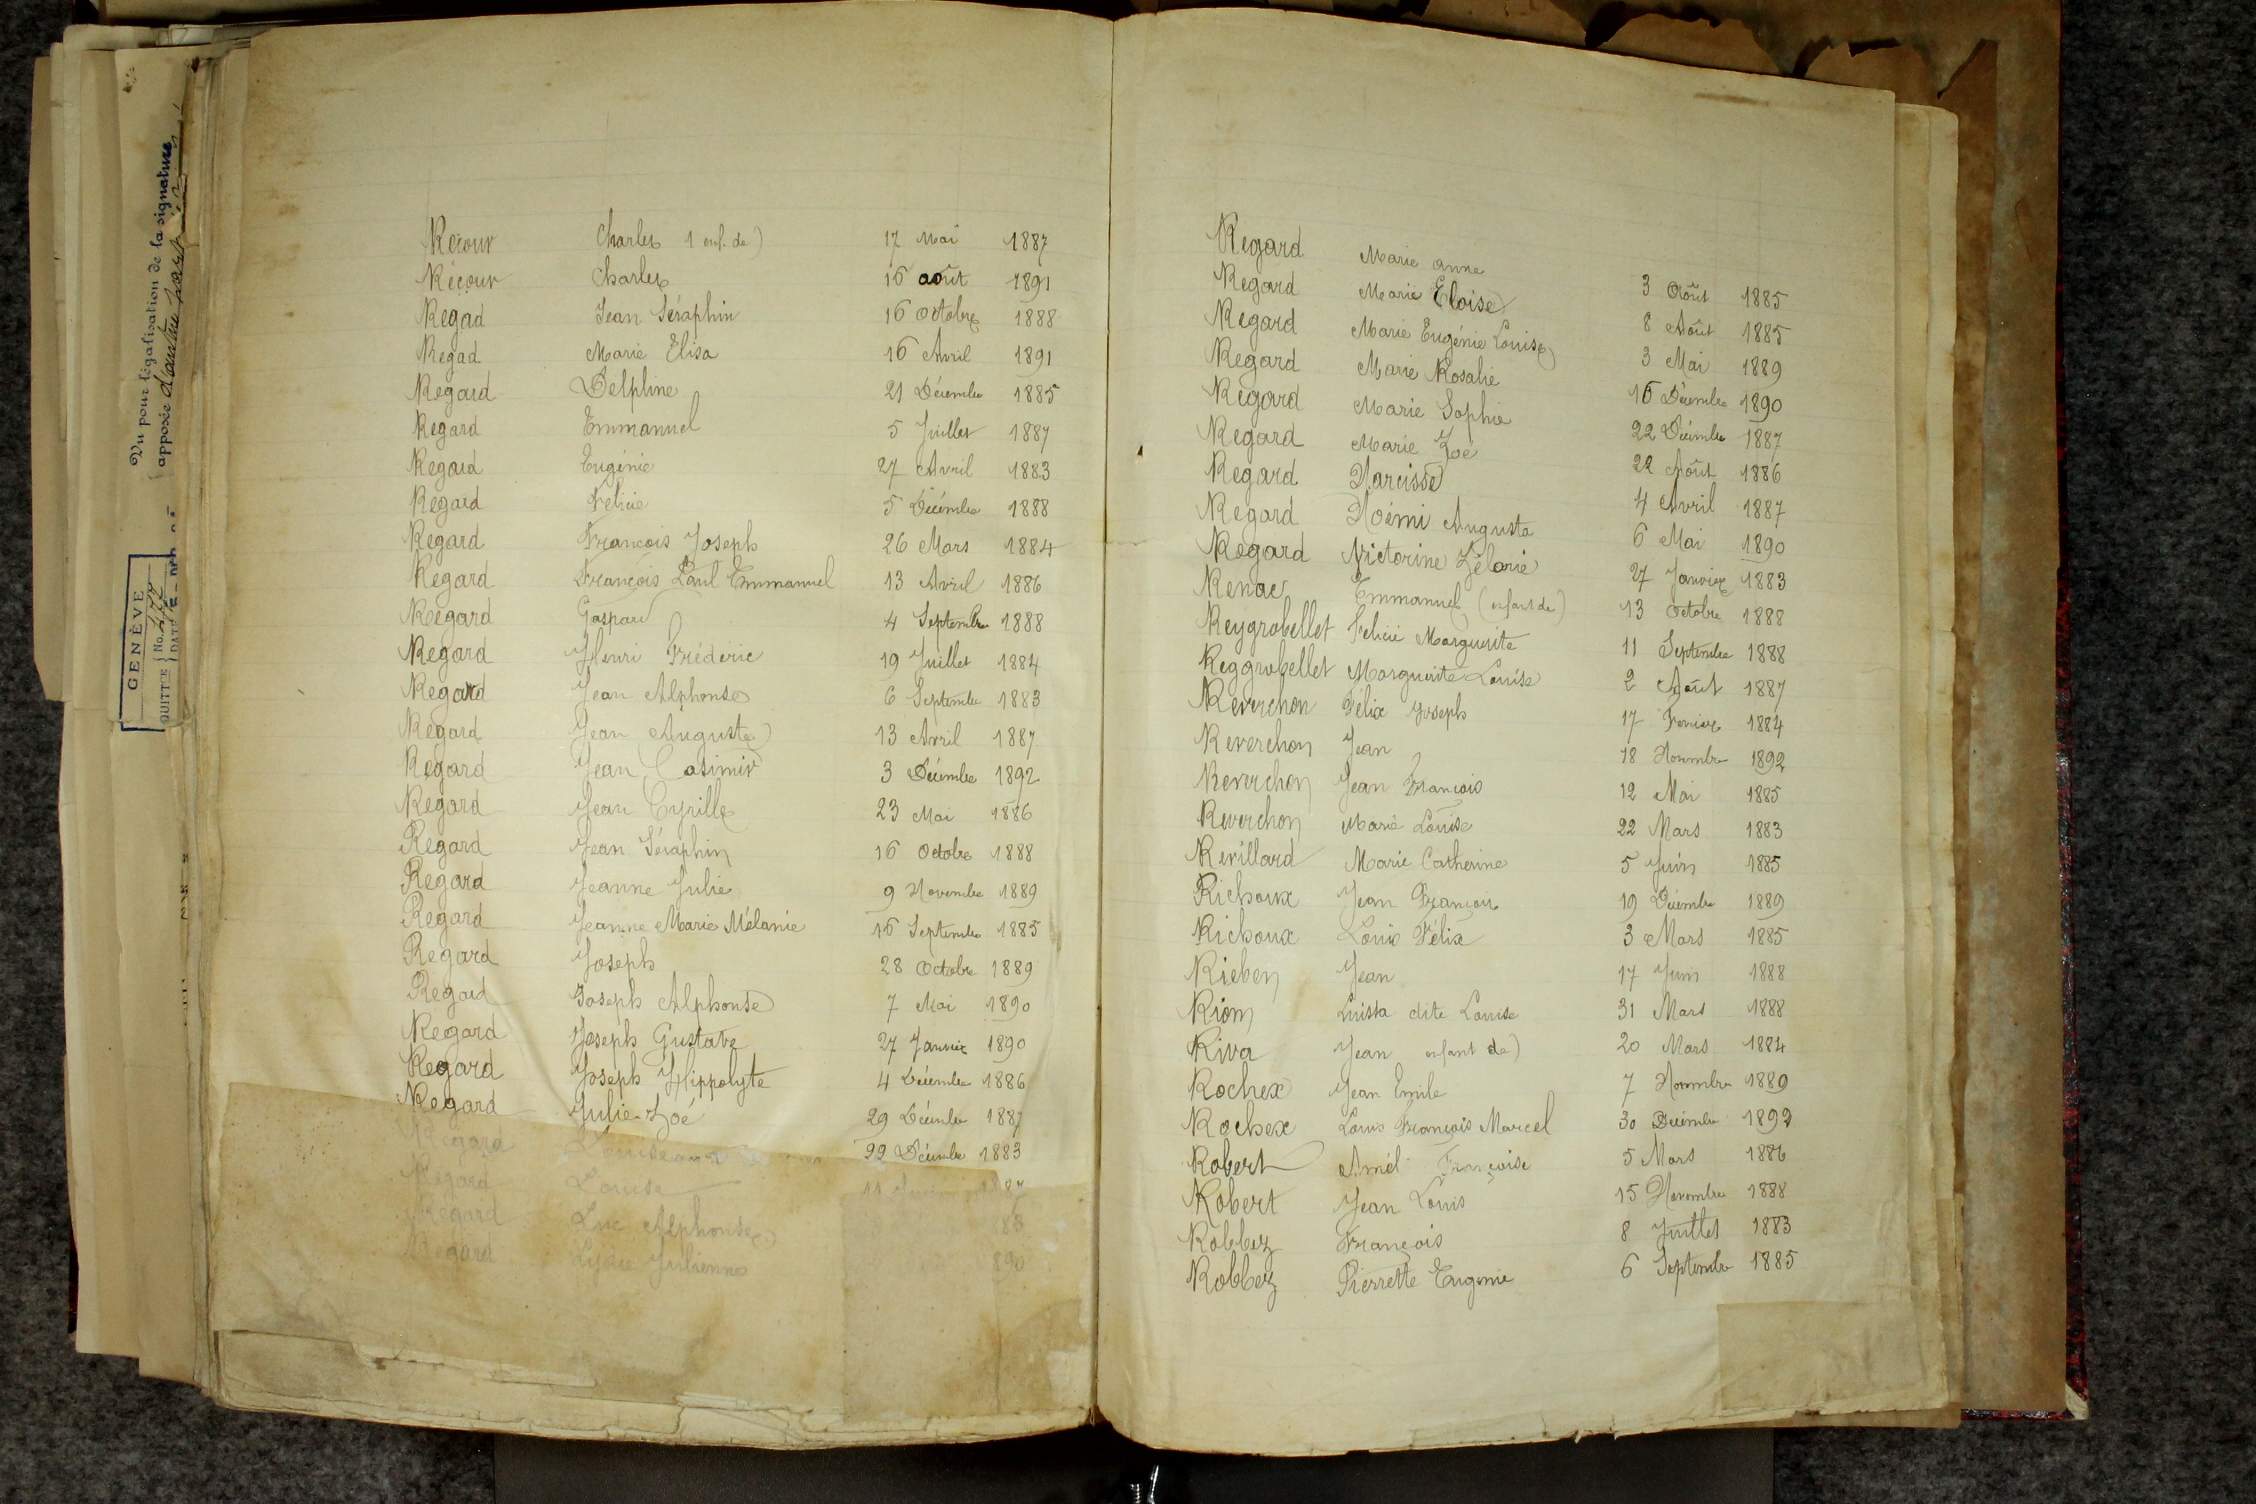 Vu pour légalisation de la signature
apposée d'autre part
GENÈVE
QUITTCE No. 477
DATE
Recour Charles 1 enf. de) 17 Mai 1887
Récour Charles 16 août 1891
Regad Jean Séraphin 16 Octobre 1888
Regad Marie Elisa 16 Avril 1891
Regard Delphine 21 Décembre 1885
Regard Emmanuel 5 Juillet 1887
Regard Eugénie 27 Avril 1883
Regard Félicie 5 Décembre 1888
Regard François Joseph 26 Mars 1884
Regard François Paul Emmanuel 13 Avril 1886
Regard Gaspard 4 Septembre 1888
Regard Henri Fréderic 19 Juillet 1884
Regard Jean Alphonse 6 Septembre 1883
Regard Jean Auguste 13 Avril 1887
Regard Jean Casimir 3 Décembre 1892
Regard Jean Cyrille 23 Mai 1886
Regard Jean Séraphin 16 Octobre 1888
Regard Jeanne Julie 9 Novembre 1889
Regard Jeanne Marie Mélanie 16 Septembre 1885
Regard Joseph 28 Octobre 1889
Regard Joseph Alphonse 7 Mai 1890
Regard Joseph Gustave 27 Janvier 1890
Regard Joseph Hippolyte 4 Décembre 1886
Regard Julie Zoé 29 Décembre 1887
Regard 22 Décembre 1883
Regard Louise 11
Regard Luc Alphonse
Regard Lydie Julienne 890
Regard Marie anne 3 Août 1885
Regard Marie Eloise 8 Août 1885
Regard Marie Eugénie Louise 3 Mai 1889
Regard Marie Rosalie 16 Décembre 1890
Regard Marie Sophie 22 Décembre 1887
Regard Marie Zoé 22 Août 1886
Regard Narcisse 4 Avril 1887
Regard Noémi Augusta 6 Mai 1890
Regard Victorine Zélarie 27 Janvier 1883
Renac Emmanuel (enfant de) 13 Octobre 1888
Reygrobellet Félicie Marguerite 11 Septembre 1888
Reggrobellet Marguerite Louise 2 Août 1887
Reverchon Félix Joseph 17 Fevrier 1884
Reverchon Jean 18 Novembre 1892
Reverchon Jean François 12 Mai 1885
Reverchon Marie Louise 22 Mars 1883
Revillard Marie Catherine 5 Juin 1885
Richoux Jean François 19 Décembre 1889
Richoux Louis Félix 3 Mars 1885
Rieben Jean 17 Juin 1888
Rion Luissa dite Louise 31 Mars 1888
Riva Jean enfant de) 20 Mars 1884
Rochex Jean Emile 7 Novembre 1889
Rochex Louis François Marcel 30 Décembre 1892
Robert Amél Françoise 5 Mars 1886
Robert Jean Louis 15 Novembre 1888
Robbez François 8 Juillet 1883
Robbez Pierrette Eugénie 6 Septembre 1885